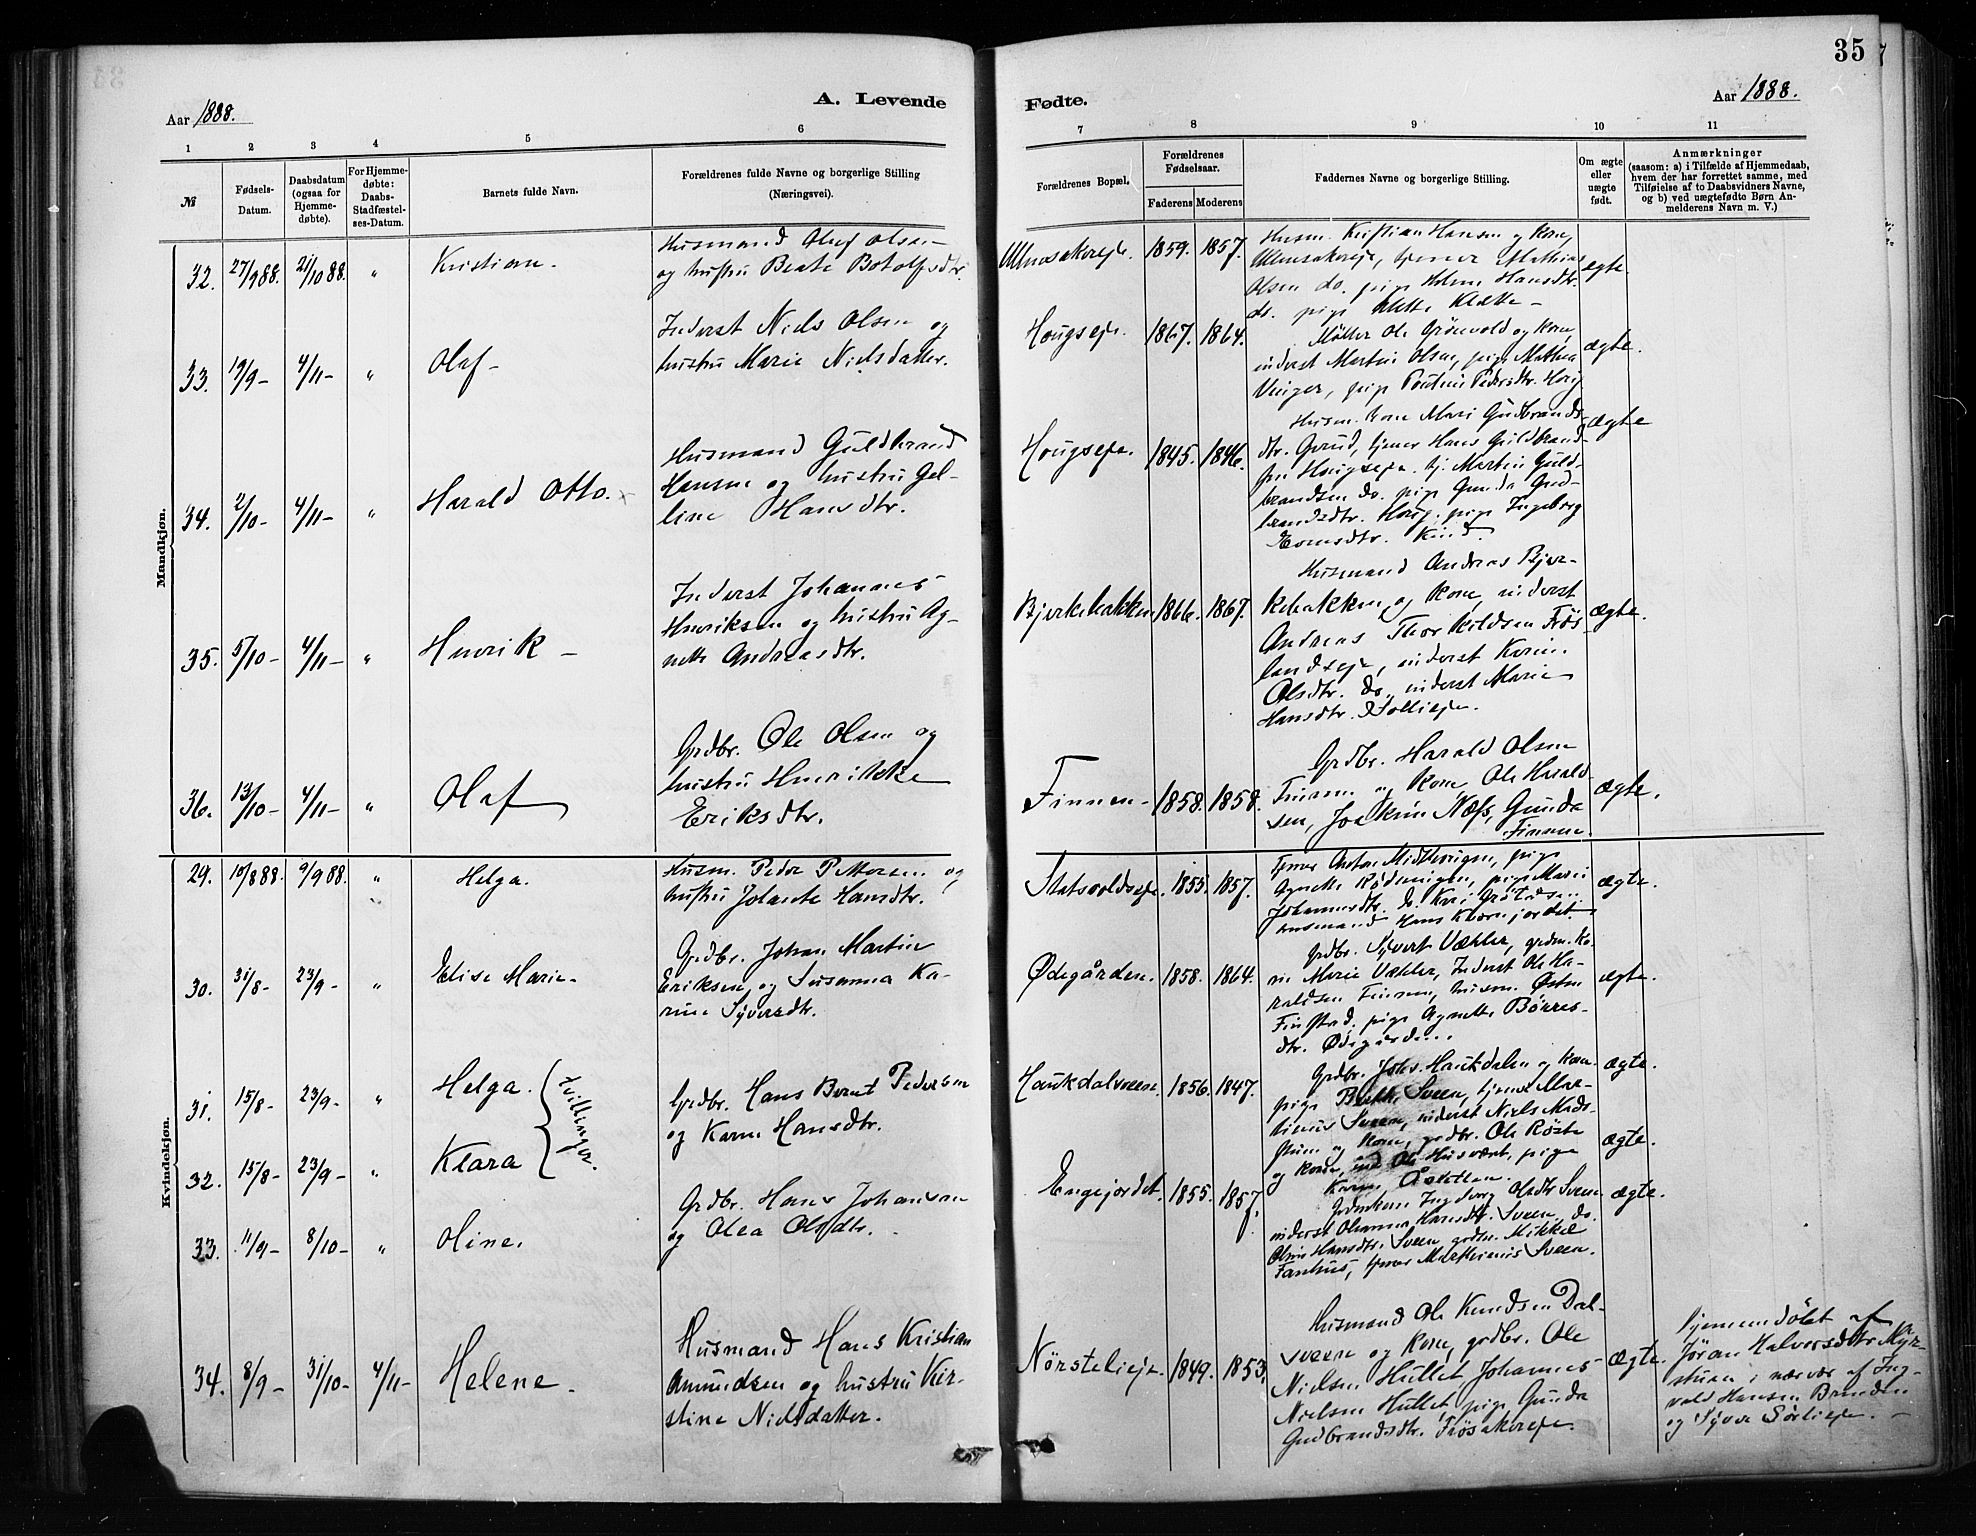 35
Aar 1888.
A. Levende
Fødte.
Aar 1888.
1 2 3 4 5 6 7 8 9 10 11
№
Fødsels-Datum.
Daabsdatum (ogsaa for Hjemme-døbte).
For Hjemme-døbte: Daabs-Stadfæstel-ses-Datum.
Barnets fulde Navn.
Forældrenes fulde Navne og borgerlige Stilling
(Næringsvei).
Forældrenes Bopæl.
Forældrenes Fødselsaar.
Faderens Moderens
Faddernes Navne og borgerlige Stilling.
Om ægte eller uægte født.
Anmærkninger
(saasom: a) i Tilfælde af Hjemmedaab,
hvem der har forrettet samme, med
Tilføielse af to Daabsvidners Navne,
og b) ved uægtefødte Børn An-
melderens Navn m. V.)
Mandkjøn.
32. 27/9 88. 21/10 88. " Kristian.
Husmand Oluf Olsen
og hustru Beate Botolfsdtr.
Ullensakereje. 1859. 1857.
Husm. Kristian Hansen og kone,
Ullensakereje, tjener Mathias
Olsen do. pige Helene Hansdtr.
do. pige Mette Klætte –
ægte.
33. 19/9 – 4/11 – " Olaf –
Inderst Niels Olsen og
hustru Marie Nielsdatter.
Hougseje. 1867. 1864.
Møller Ole Grönvold og kone,
inderst Martin Olsen, pige Mathea
Vinger, pige Pauline Pedersdtr. Houg
ægte.
34. 2/10 – 4/11 – " Harald Otto.
Husmand Guldbrand
Hansen og hustru Gel-
line Hansdtr.
Hougseje. 1845. 1846.
Husm. kone Mari Gudbrands-
dtr. tjener Hans Guldbrand-
sen Hougseje. tj. Martin Guld-
brandsen do. pige Gunda Gud-
brandsdtr. Houg. pige Ingeborg
Evensdtr. Kind.
ægte
35. 5/10 – 4/11 – " Henrik –
Inderst Johannes
Henriksen og hustru Ag-
nette Andreasdtr.
Bjerkebakken 1866. 1867.
Husmand Andreas Bjer-
kebakken og kone, inderst
Andreas Thorkildsen Frös-
landseje, inderst Karin
Olsdtr. do., inderst Marie
Hansdtr.
ægte.
36. 13/10 – 4/11 – " Olaf
Grdbr. Ole Olsen og
hustru Henrikke
Eriksdtr.
Finnen – 1858. 1858.
Grdbr. Harald Olsen
Finnen og kone, Ole Harald-
sen, Joakim Næss, Gunda
Finnen.
ægte.
Kvindekjøn.
29. 10/8 88. 9/9 88. " Helga.
Husm. Peder Pettersen og
hustru Jolante Hansdtr.
Statsvoldseje. 1855. 1857.
tjener Anton Midtvingen, pige
Agnette Rødvingen, pige Marie
Johannesdtr. do.
husmand Hans Kværnjordet
ægte.
30. 31/8 – 23/9 – " Elise Marie –
Grdbr. Johan Martin
Eriksen, og Susanna Ka-
rine Syversdtr.
Ødegården. 1858. 1864.
Grdbr. Syvert Vækler, grdm. Ka-
rn Marie Vækler, Inderst Ole Ha-
raldsen Finnen, husm. Østen
Finstad, pige Agnette Børres-
dtr. Ødegården.
ægte.
31. 15/8 – 23/9 – " Helga.
32. 15/8 – 23/9 – " Klara
Tvillinger.
Grdbr. Hans Bernt Pedersen
og Karen Hansdtr.
Haukdalsveen. 1856. 1847.
Grdbr. Johs. Haukdalen og kone
pige Berthe Sveen, tjener Mar-
tinus Sveen, inderst Niels Mids-
og kone, grdbr. Ole Røste
og kone, ind. Ole Husvært, pige
Karen
ægte.
ægte.
33. 11/9 – 8/10 – " Oline.
Grdbr. Hans Johansen
og Olea Olsdtr.
Engejordet. 1855. 1857.
Ingeborg Olsdtr. Sveen
inderst Johanna Hansdtr. Sveen, do.
Oline Hansdtr. Sveen grdm. Mikkel
Fanhus, tjener Marthinus Sveen.
ægte.
34. 8/9 – 31/10 – 4/11 – Helene –
Husmand Hans Kristian
Amundsen og hustru Kir-
stine Nielsdatter.
Nørstelieje. 1849. 1853.
Husmand Ole Knudsen Dal-
sveen og kone, grdbr. Ole
Nielsen Hullet Johannes
Nielsen Hullet, pige Gunda
Gudbrandsdtr. Frösakereje.
ægte.
Hjemmedøbt af
Jöran Halvorsdtr. Myr-
stuen i nærvær af Ing-
vald Hansen Brenden
og Syver Sørlieje. –